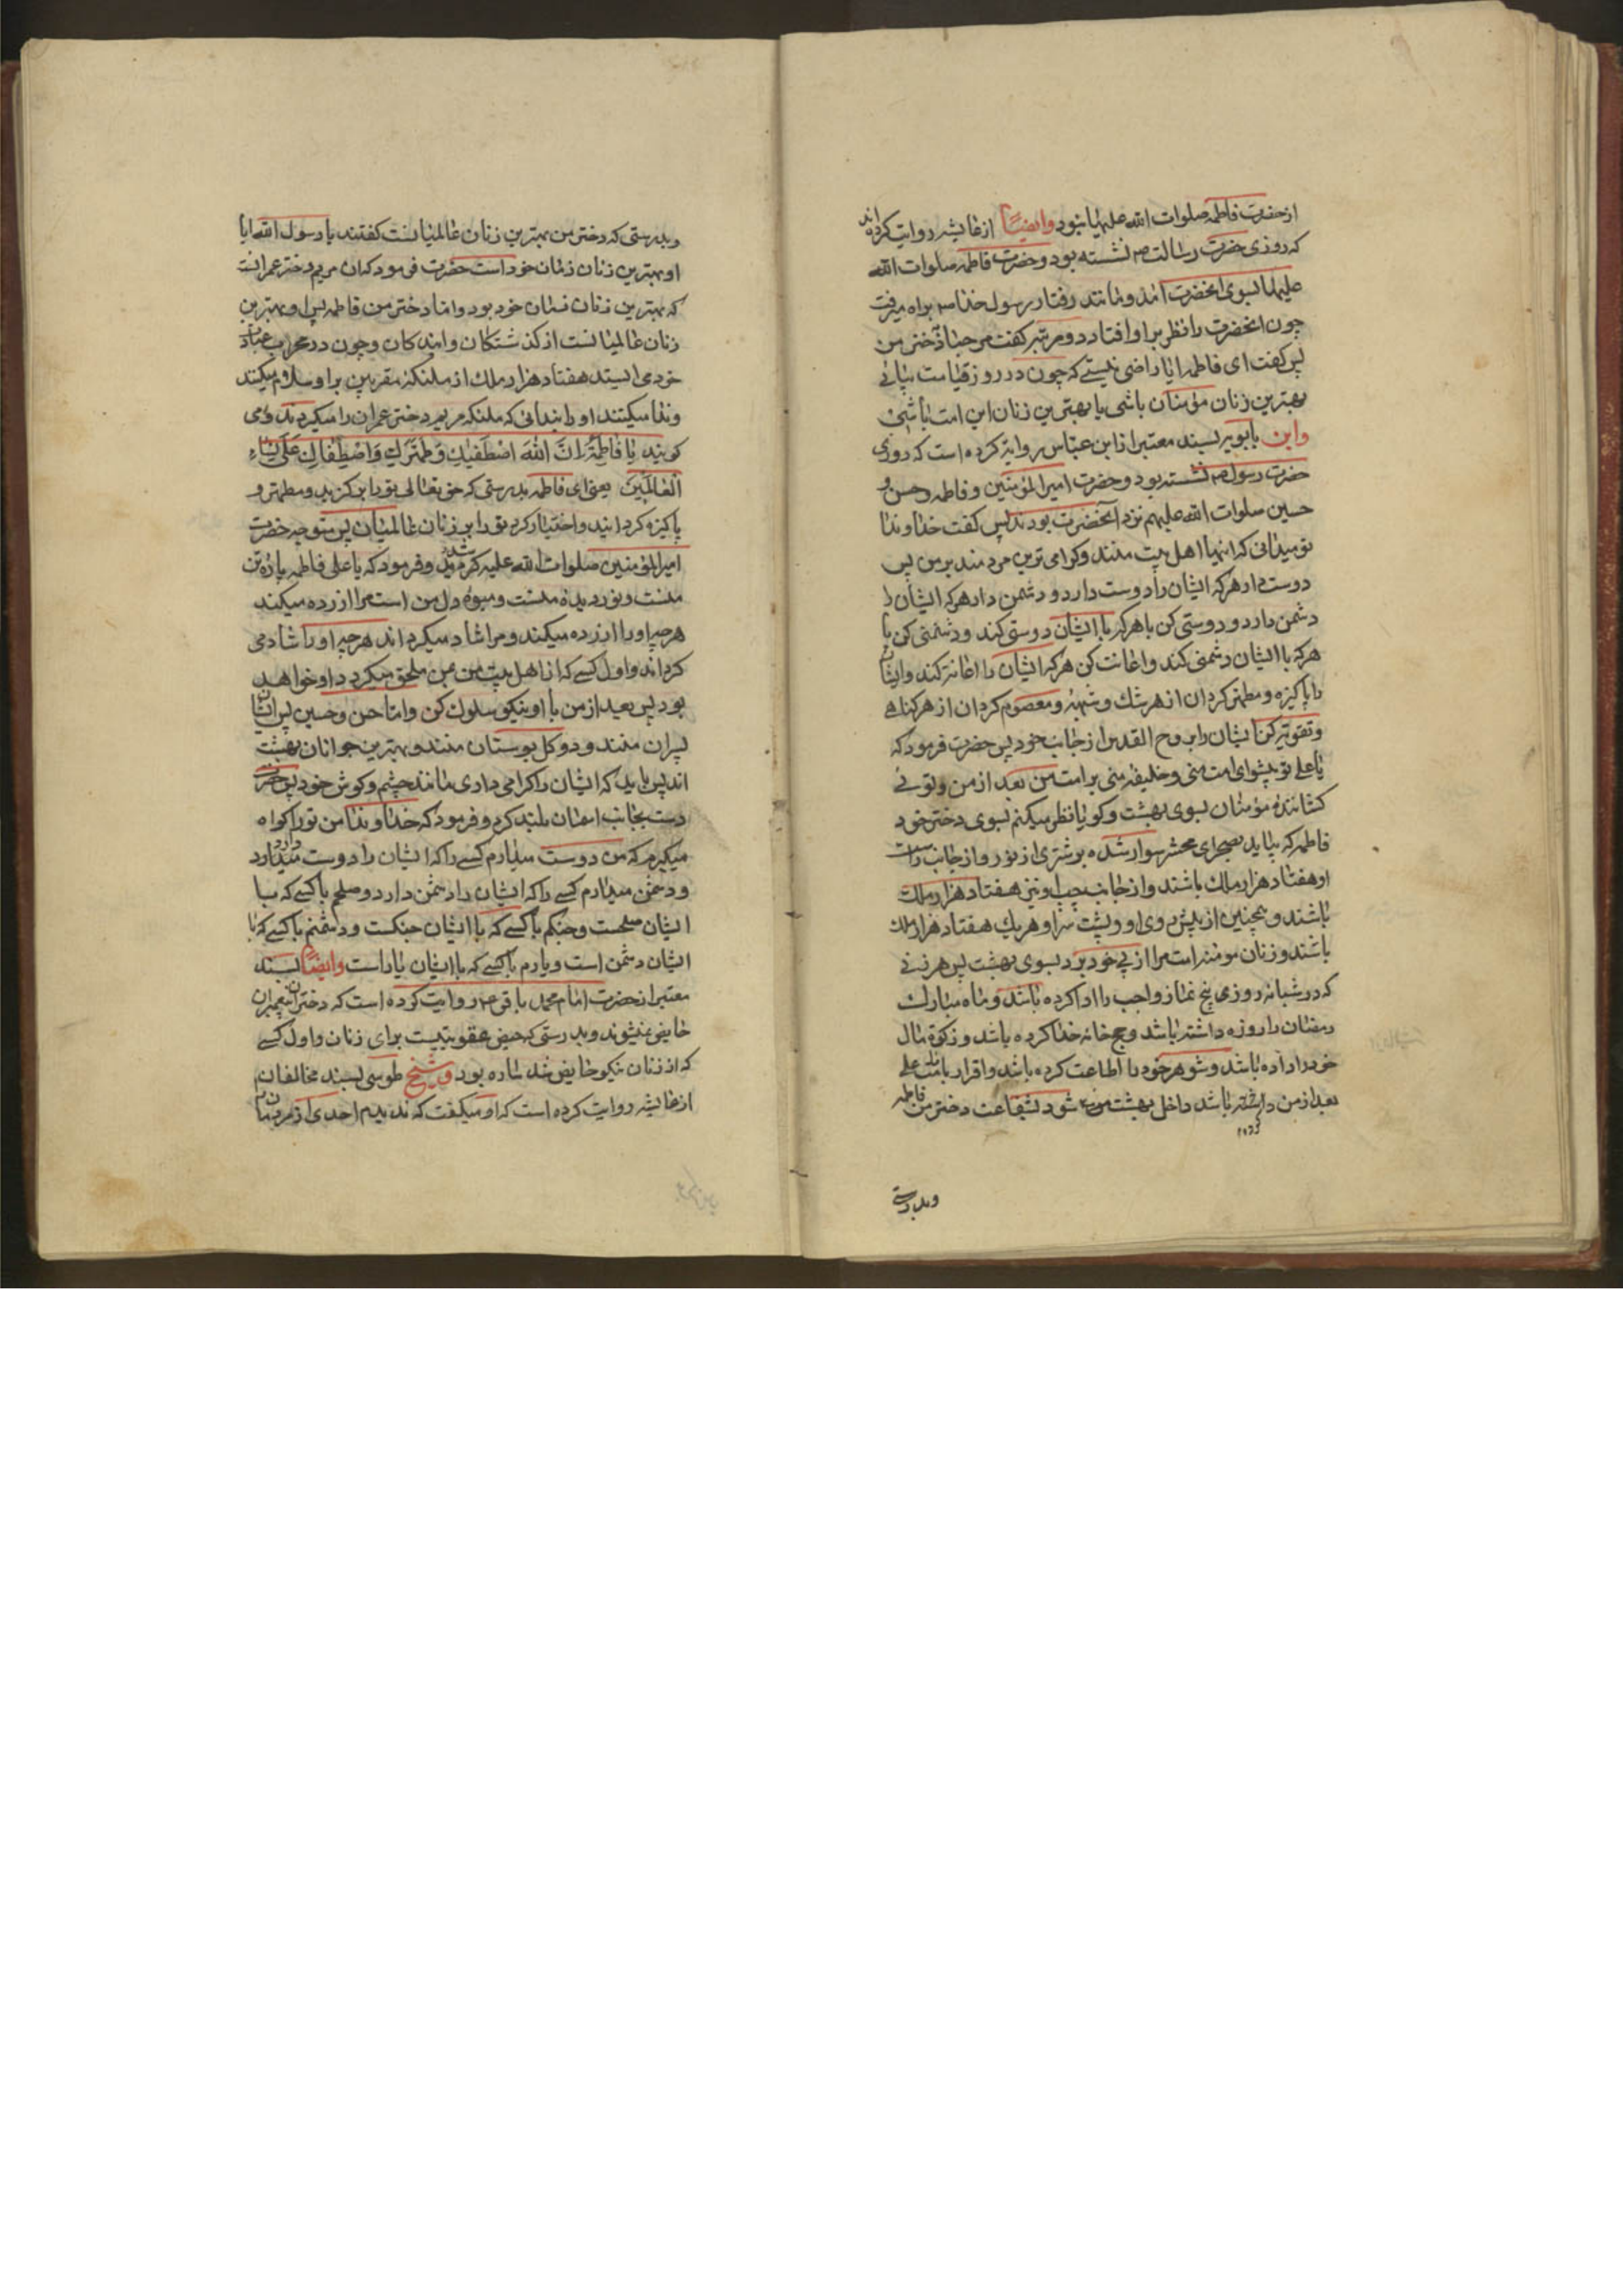 از حضرت فاطمه صلوات الله علیها نبود وایضاً از عایشه روایت کرده اند
که روزی حضرت رسالت ص نشسته بود و حضرت فاطمه صلوات الله
علیها بسوی انحضرت امد و مانند رفتار رسول خدا ص براه میرفت
چون انحضرت را نظر بر او افتاد دو مرتبه گفت مرحبا دختر من
پس گفت ای فاطمه ایا راضی نیستی که چون در روز قیامت بیائی
بهترین زنان مؤمنان باشی یا بهترین زنان این امت باشی
وابن بابویه بسند معتبر از ابن عباس روایة کرده است که روزی
حضرت رسول ص نشسته بود و حضرت امیرالمؤمنین و فاطمه و حسن و
حسین صلوات الله علیهم نزد آنحضرت بودند پس گفت خداوندا
تو میدانی که اینها اهل بیت منند و کرامی ترین مردمند بر من پس
دوست دار هر که ایشان را دوست دارد و دشمن دار هر که ایشان را
دشمن دارد و دوستی کن با هر که با ایشان دوستی کند و دشمنی کن با
هر که با ایشان دشمنی کند و اعانت کن هر که ایشان را اعانة کند و ایشان
را پاکیزه و مطهر کردان از هر شك و شبهه و معصوم کردان از هر کناهی
و تقویة کن ایشان را بروح القدس از جانب خود پس حضرت فرمود که
یا علی تو پیشوای امت منی و خلیفه منی بر امت من بعد از من و توئی
کشاننده مؤمنان بسوی بهشت و کویا نظر میکنم بسوی دختر خود
فاطمه که بیاید بصحرای محشر سوار شده بر شتری از نور و از جانب راست
او هفتاد هزار ملك باشند و از جانب چپ او نیز هفتاد هزار ملك
باشند و همچنین از پیش روی او و پشت سر او هر یك هفتاد هزار ملك
باشند و زنان مومنه امت مرا از پی خود برد بسوی بهشت پس هر زنی
که در شبانه روزی پنج نماز واجب را ادا کرده باشد و ماه مبارك
رمضان را روزه داشته باشد و حج خانه خدا کرده باشد و زکوة مال
خود را داده باشد و شوهر خود را اطاعت کرده باشد و اقرار بامامت علی
بعد از من داشته باشد داخل بهشت شود بشفاعت دختر من فاطمه
وبدرستی
وبدرستی که دختر من بهترین زنان عالمیانست کفتند یا رسول الله ایا
او بهترین زنان زمان خود است حضرت فرمود که ان مریم دختر عمرانست
که بهترین زنان زمان خود بود و اما دختر من فاطمه پس او بهترین
زنان عالمیانست از کذشتکان و ایندکان و چون در محراب عبادت
خود می ایستد هفتاد هزار ملك از ملئکه مقربین بر او سلام میکنند
و ندا میکنند او را بندائی که ملئکه مریم دختر عمران را میکردند و می
کویند یا فاطِمَةُ اِنَّ اللهَ اصْطَفیٰكِ وَ طَهَّرَكِ وَ اصْطَفاكِ عَلیٰ نِساءِ
الْعالَمینَ یعنی ای فاطمه بدرستی که حق تعالی تو را بر کزید و مطهر و
پاکیزه کردانید و اختیار کرد تو را بر زنان عالمیان پس متوجه حضرت
امیرالمؤمنین صلوات الله علیه کردید و فرمود که یا علی فاطمه پاره تن
منست و نور دیده منست و میوه دل من است مرا ازرده میکند
هر چه او را ازرده میکند و مرا شاد میکرداند هر چه او را شاد می
کرداند و اول کسی که از اهل بیت من بمن ملحق میکردد او خواهد
بود پس بعد از من با او نیکو سلوك کن و اما حسن و حسین پس ایشان
پسران منند و دو کل بوستان منند و بهترین جوانان بهشت
اند پس باید که ایشان را کرامی داری مانند چشم و کوش خود پس حضرت
دست بجانب اسمان بلند کرد و فرمود که خداوندا من تو را کواه
میکیرم که من دوست میدارم کسی را که ایشان را دوست میدارد
و دشمن میدارم کسی را که ایشان را دشمن دارد و صلحم با کسی که با
ایشان صلحست و جنکم با کسی که با ایشان جنکست و دشمنم با کسی که با
ایشان دشمن است و یارم با کسی که با ایشان یار است وایضاً بسند
معتبر از حضرت امام محمد باقر ع روایت کرده است که دختران پیغمبران
حایض نمیشوند وبدرستی که حیض عقوبتیست برای زنان و اول کسی
که از زنان نیکو حایض شد ساره بود وشیخ طوسی بسند مخالفان
از عایشه روایت کرده است که او میکفت که ندیدم احدی از مردمان